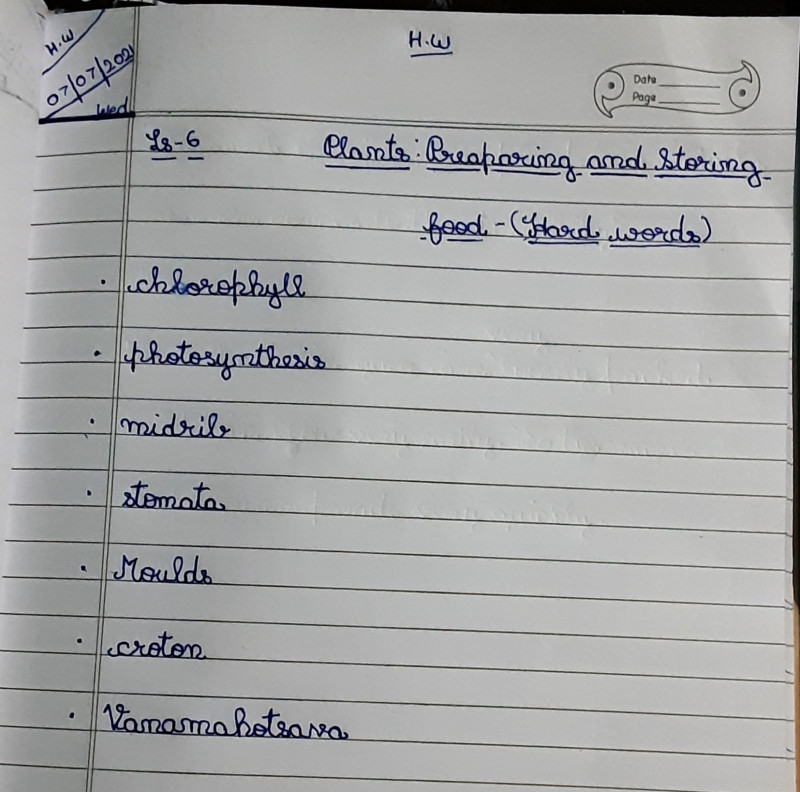 H.W
H.W
07/07/2021
Wed
Date
Page
Ls-6
Plants: Preaparing and Storing
food - (Hard words)
. chlorophyll
. photosynthesis
. midrib
. stomata
. Moulds
. croton
. Vanamahotsava